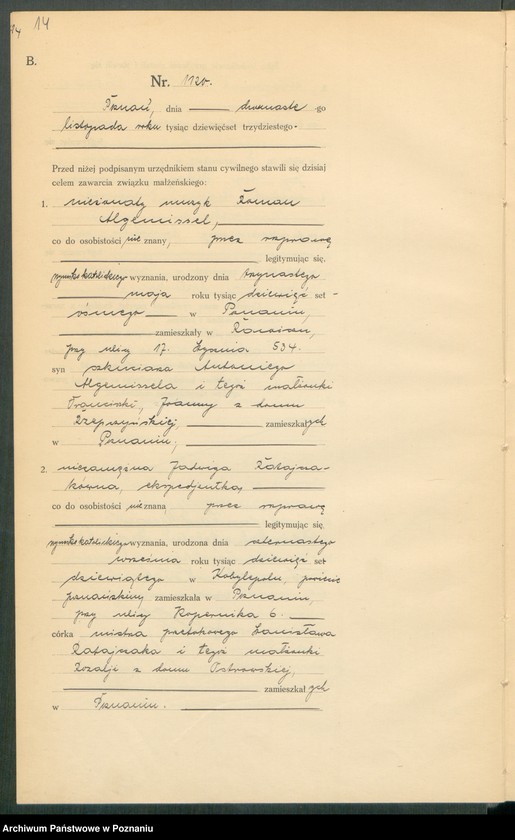 14 14
B.
Nr. 1120.
Poznań, dnia dwunaste -go
listopada roku tysiąc dziewięćset trzydziestego -
Przed niżej podpisanym urzędnikiem stanu cywilnego stawili się dzisiaj
celem zawarcia związku małżeńskiego:
1. nieżonaty muzyk Roman
Algemissel,
co do osobistości nie znany, przez rozprawę
legitymując się,
rzymsko katolickiego wyznania, urodzony dnia trzynastego
maja roku tysiąc dziewięć set -
ósmego w Poznaniu,
zamieszkały w
przy ulicy 17. 534.
syn szklarza Antoniego
Algemissela i tegoż małżonki
Franciszki, Joanny z domu
Rzepczyńskiej, zamieszkałych
w Poznaniu,
2. niezamężna Jadwiga Ratajcza-
kówna, ekspedjentka,
co do osobistości nieznana przez rozprawę
legitymując się,
rzymsko katolickiego wyznania, urodzona dnia
września roku tysiąc dziewięć set
dziewiątego w Kobylepolu, powiecie
poznańskim, zamieszkała w Poznaniu,
przy ulicy Kopernika 6.
córka mistrza Stanisława
Ratajczaka i tegoż małżonki
Rozalji z domu Ostrowskiej,
zamieszkałych
w Poznaniu.
Archiwum Państwowe w Poznaniu